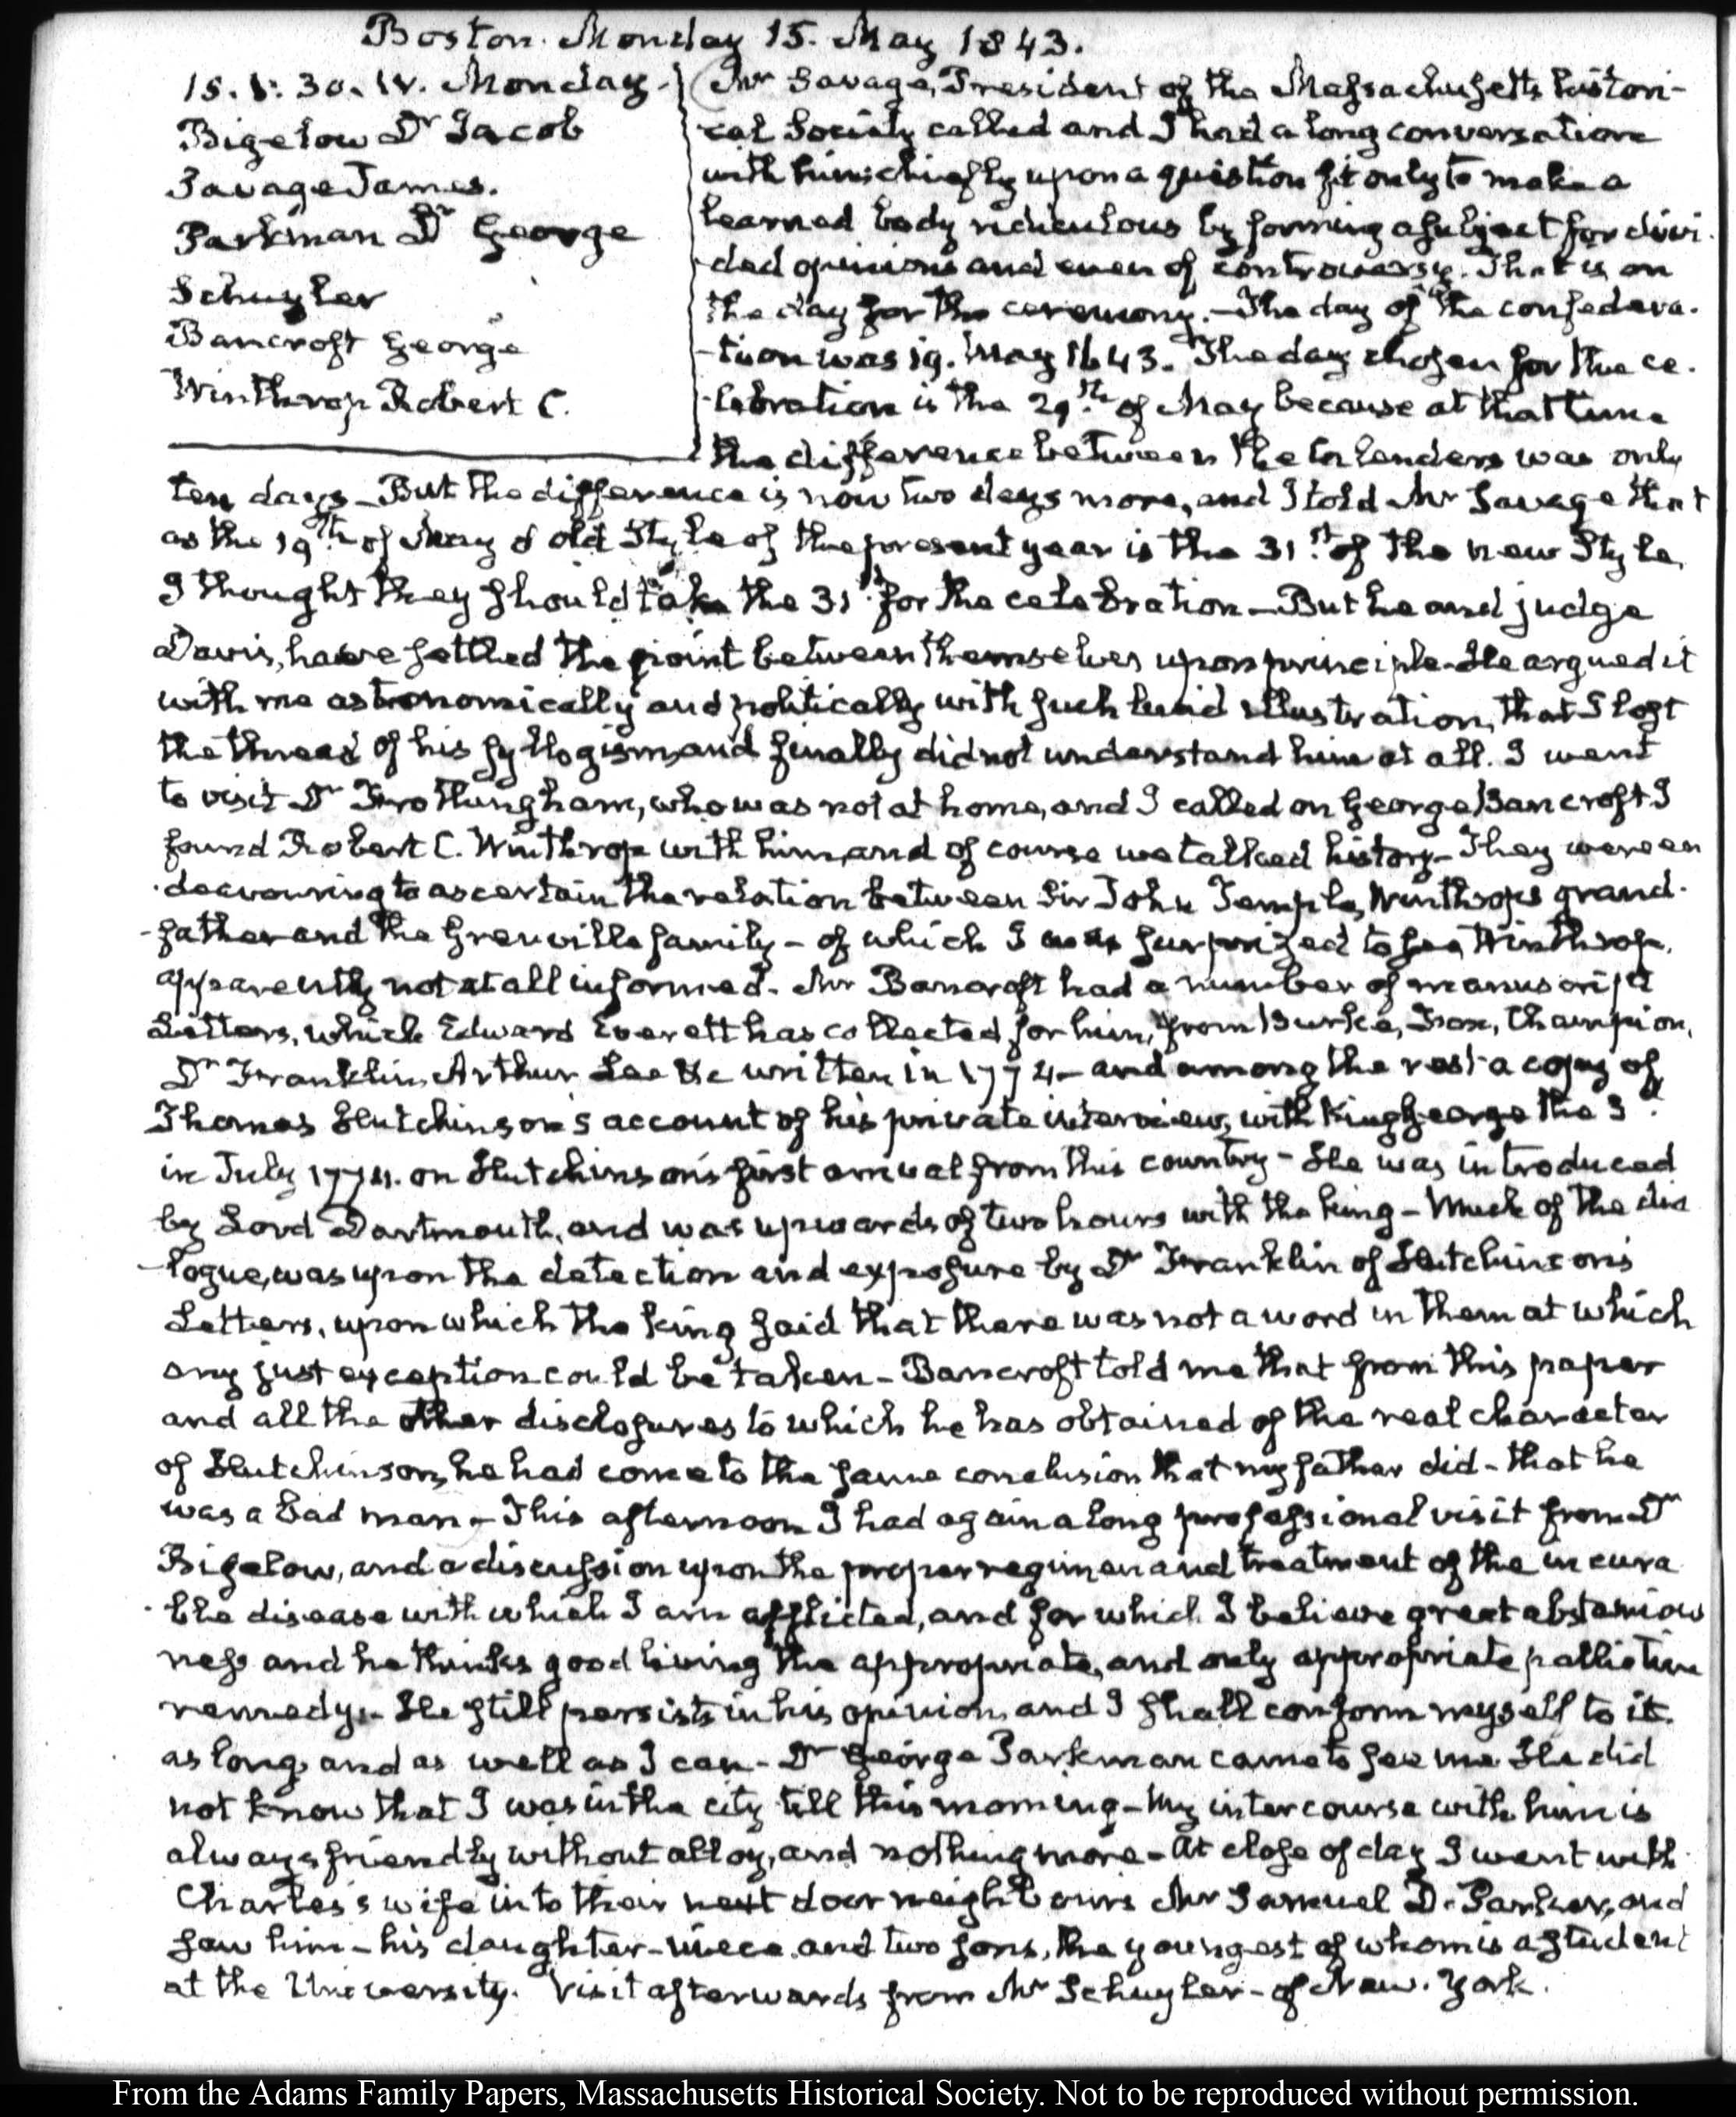 Boston. Monday 15. May 1843.
15. V: 30. IV. Monday.
Bigelow Dr Jacob
Savage James.
Parkman Dr George
Schuyler
Bancroft George
Winthrop Robert C.
Mr Savage, President of the Massachusetts histori-
cal Society called and I had a long conversation
with him chiefly upon a question fit only to make a
learned body ridiculous by forming a subject for divi-
ded opinions and even of controversy. That is on
the day for the ceremony.—The day of the confedera-
-tion was 19. May 1643. The day chosen for the ce-
-lebration is the 29th of May because at that time
the difference between the Calendars was only
ten days—But the difference is now two days more, and I told Mr Savage that
as the 19th of May old Style of the present year is the 31st of the new Style,
I thought they should take the 31st for the celebration—But he and judge
Davis, have settled the point between themselves upon principle—He argued it
with me astronomically and politically with such lucid illustration, that I lost
the thread of his syllogism, and finally did not understand him at all. I went
to visit Dr Frothingham, who was not at home, and I called on George Bancroft. I
found Robert C. Winthrop with him, and of course we talked history—They were en
-deavouring to ascertain the relation between Sir John Temple, Winthrop's grand-
-father and the Grenville family—of which I was surprized to see Winthrop,
apparently not at all informed. Mr Bancroft had a number of manuscript
Letters, which Edward Everett has collected for him, from Burke, Fox, Champion,
Dr Franklin, Arthur Lee &c written in 1774—and among the rest a copy of
Thomas Hutchinson's account of his private interview, with King George the 3d
in July 1774. on Hutchinson's first arrival from this country—He was introduced
by Lord Dartmouth, and was upwards of two hours with the king—Much of the dia
-logue, was upon the detection and exposure by Dr Franklin of Hutchinson's
Letters, upon which the king said that there was not a word in them at which
any just exception could be taken—Bancroft told me that from this paper
and all the other disclosures to which he has obtained of the real character
of Hutchinson, he had come to the same conclusion that my father did—that he
was a bad man—This afternoon I had again a long professional visit from Dr
Bigelow, and a discussion upon the proper regimen and treatment of the incura
-ble disease with which I am afflicted, and for which I believe great abstemious
ness and he thinks good living the appropriate, and only appropriate palliative
remedy.—He still persists in his opinion, and I shall conform myself to it.
as long, and as well as I can—Dr George Parkman came to see me He did
not know that I was in the city till this morning—My intercourse with him is
always friendly without alloy, and nothing more—At close of day I went with
Charles's wife into their next door neighbours Mr Samuel D. Parker, and
saw him—his daughter—niece and two sons, the youngest of whom is a student
at the University. Visit afterwards from Mr Schuyler—of New. York.
From the Adams Family Papers, Massachusetts Historical Society. Not to be reproduced without permission.